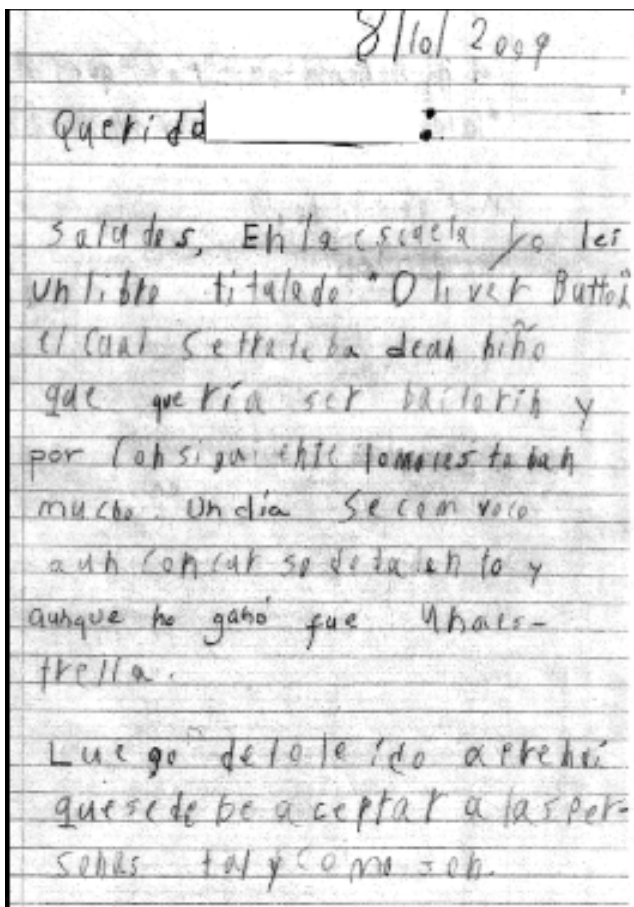 8/10/2009
Querida :
Saludos, En la escuela yo leí
un libro titulado "Oliver Button"
el cual se trataba de un niño
que quería ser bailarín y
por consiguiente lo molestaban
mucho. Un día se convocó
a un concurso de talento y
aunque no ganó fue una es-
trella.
Luego de lo leído aprendí
que se debe aceptar a las per-
sonas tal y como son.